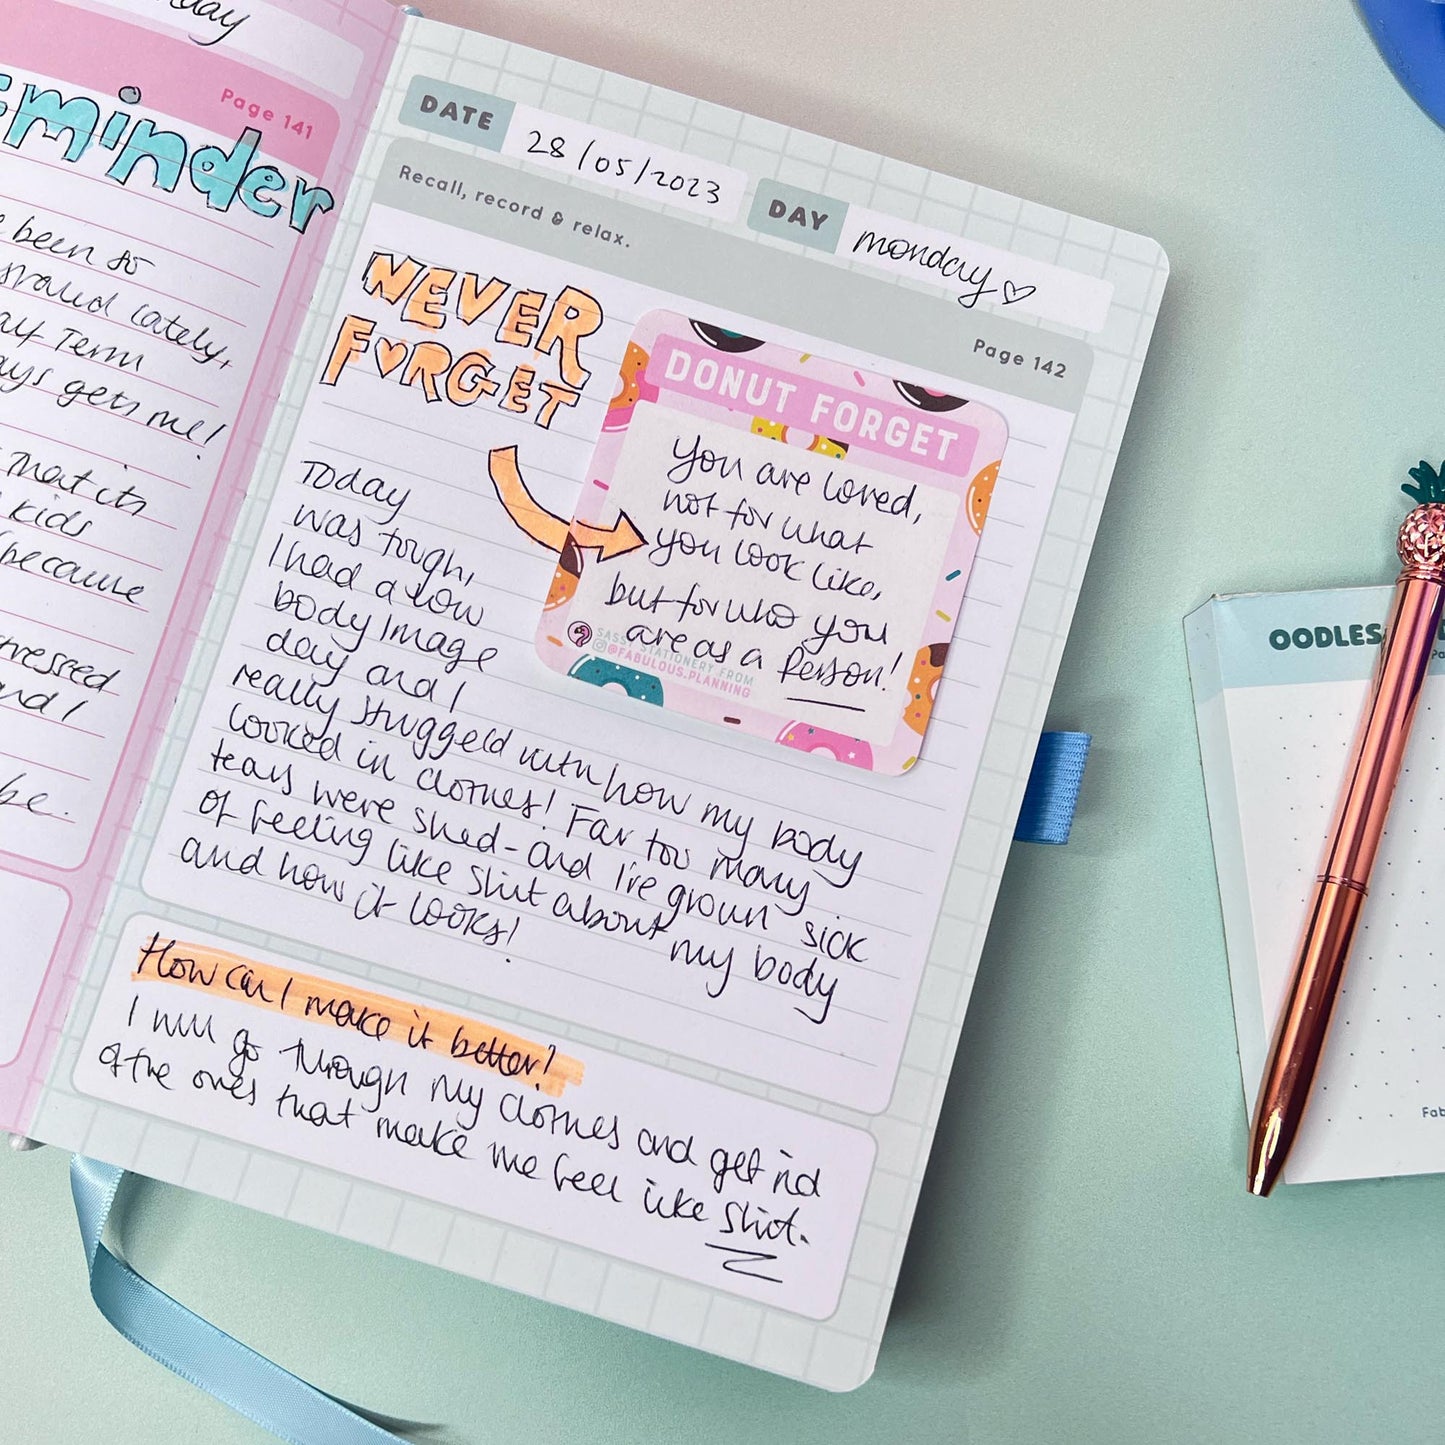 day
Page 141
minder
been so
lately,
Term
gets me!
that its
kids
because
stressed
and I
be.
DATE
28/05/2023
DAY
monday ♡
Recall, record & relax.
Page 142
NEVER
FORGET
DONUT FORGET
You are loved,
not for what
you look like,
but for who you
are as a person!
SASSY STATIONERY FROM
@FABULOUS.PLANNING
Today
was tough,
I had a low
body image
day and I
really struggeld with how my body
looked in clothes! Far too many
tears were shed - and I've grown sick
of feeling like shit about my body
and how it looks!
How can I make it better?
I will go through my clothes and get rid
of the ones that make me feel like shit.
OODLES
Fab